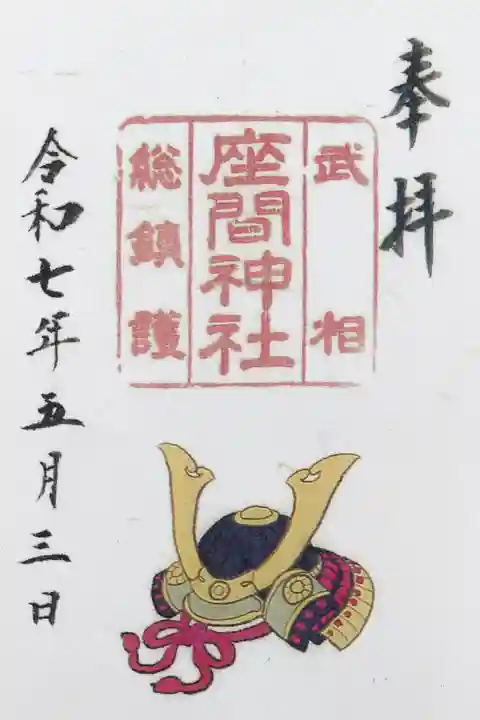 奉拝
武相
座間神社
総鎮護
令和七年五月三日